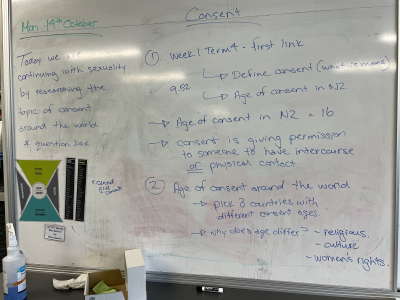 Consent
Mon 14th October
Today we are
continuing with sexuality
by researching the
topic of consent
around the world
& question box
① Week 1 Term 4 - first link
9.52
Define consent (what is means)
Age of consent in NZ
Age of consent in NZ = 16
consent is giving permission
to someone to have intercourse
or physical contact.
② Age of consent around the world
pick 3 countries with
different consent ages.
Why does age differ? - religious.
- culture
- women's rights.